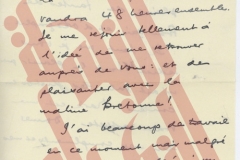 vaudra 48 heures ensemble.
Je me réjouis tellement à
l'idée de me retrouver
auprès de vous et de
plaisanter avec la
matine bretonne!
J'ai beaucoup de travail
en ce moment mais malgré